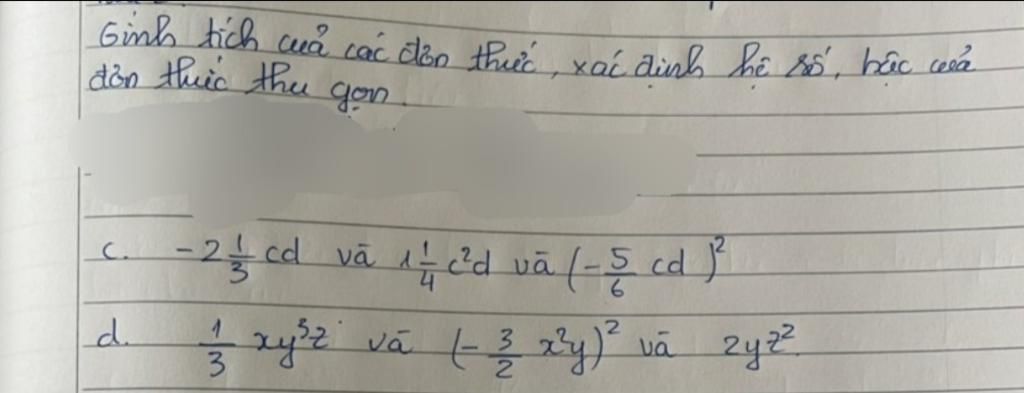 Tính tích cuả các đơn thức, xác định hệ số, bậc cuả
đơn thức thu gọn.
c. -2 1/3 cd và 1 1/4 c²d và (-5/6 cd)²
d. 1/3 xy³z và (-3/2 x²y)² và 2yz².